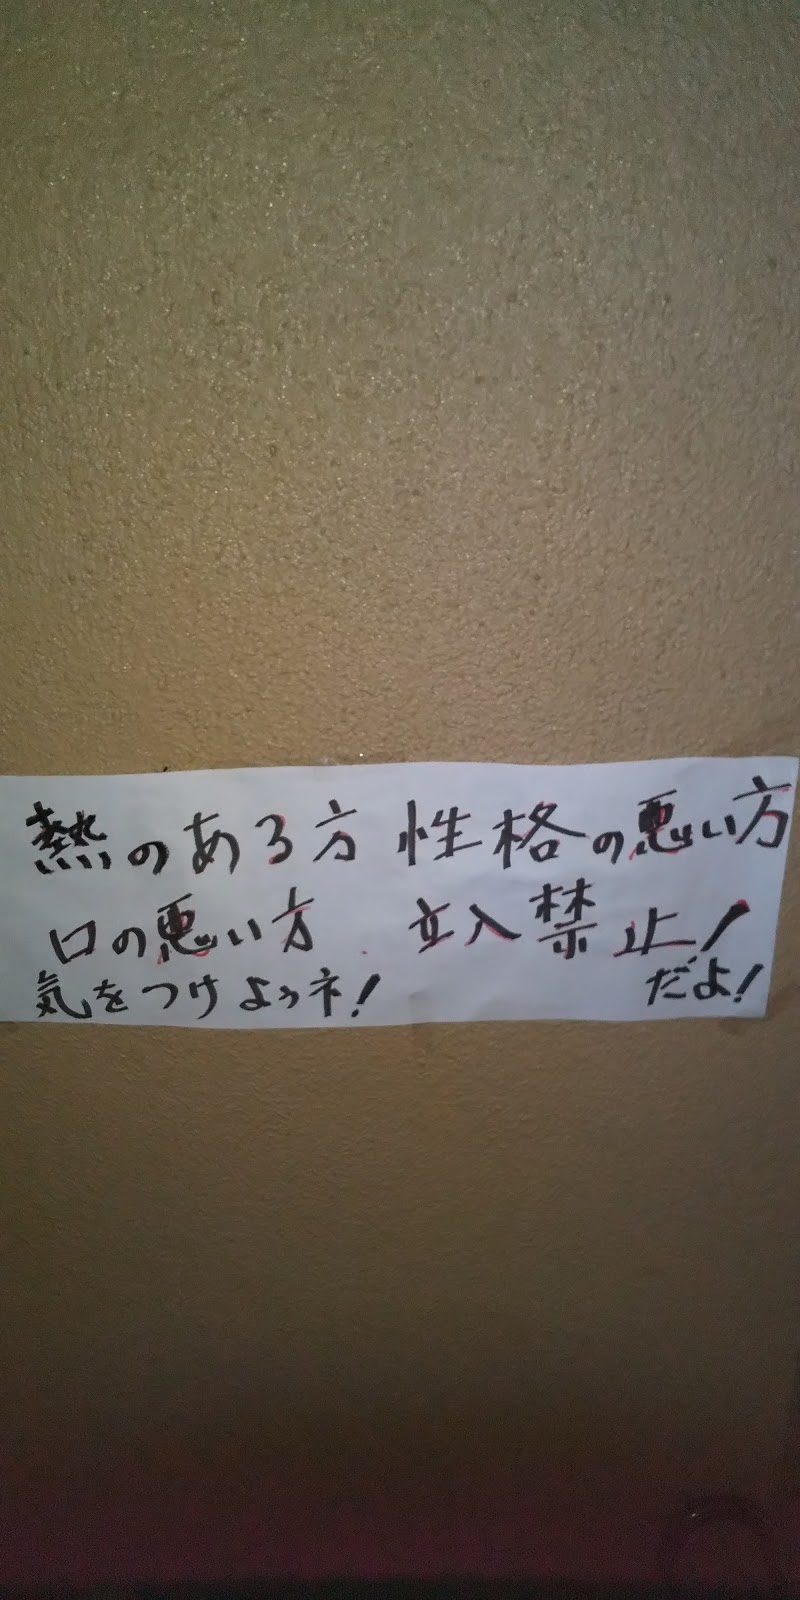 熱のある方 性格の悪い方
口の悪い方 立入禁止!
気をつけようネ! だよ!